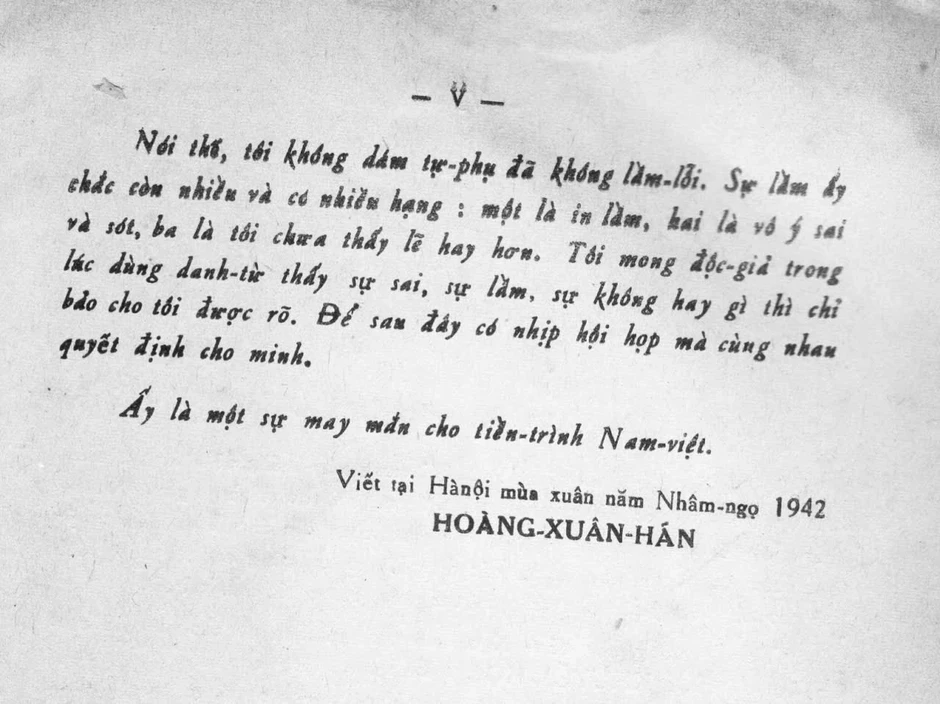 — V —
Nói thế, tôi không dám tự-phụ đã không lầm-lỗi. Sự lầm ấy
chắc còn nhiều và có nhiều hạng : một là in lầm, hai là vô ý sai
và sót, ba là tôi chưa thấy lẽ hay hơn. Tôi mong độc-giả trong
lúc dùng danh-từ thấy sự sai, sự lầm, sự không hay gì thì chỉ
bảo cho tôi được rõ. Để sau đây có nhịp hội họp mà cùng nhau
quyết định cho minh.
Ấy là một sự may mắn cho tiền-trình Nam-việt.
Viết tại Hànội mùa xuân năm Nhâm-ngọ 1942
HOÀNG-XUÂN-HÁN